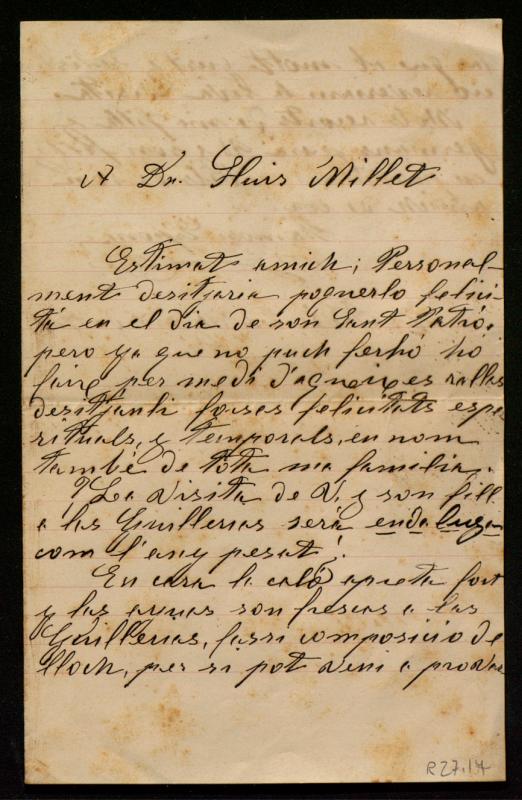 A Dn. Lluis Millet
Estimat amich; Personal-
ment desitjaria poguerlo felici-
tá en el dia de son Sant Patró.
pero ya que no puch ferhó hó
faig per medi d'aqueixes rallas
desitjantli forsas felicitats espi-
rituals, y temporals, en nom
també de tota ma familia.
¿La visita de V. y son fill
a las Guillerias será
com l'any pesat?
En cara la caló apreta fort
y las aguas son frescas a las
Guillerias, fassi composició de
lloch, per si pot veni a provar
R27.14